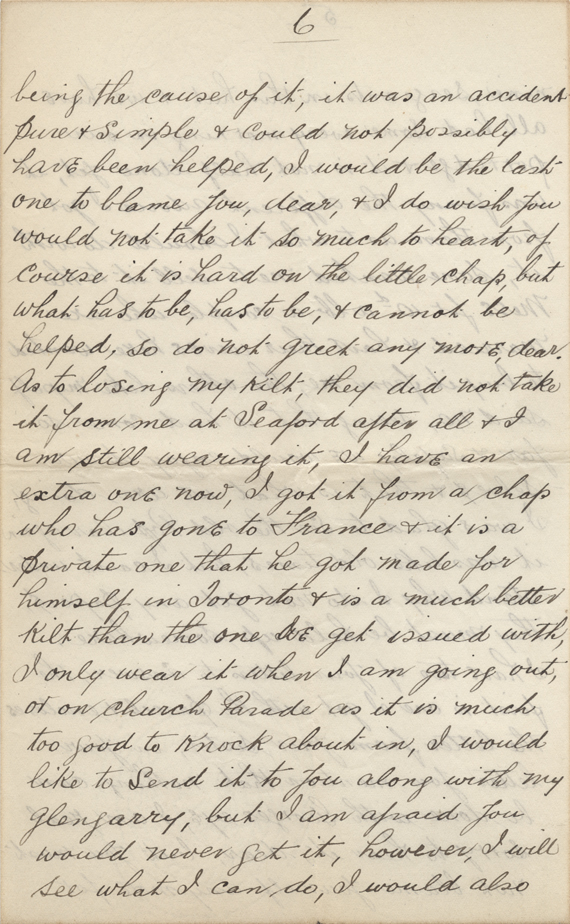 6
being the cause of it, it was an accident
pure & simple & could not possibly
have been helped, I would be the last
one to blame you, dear, & I do wish you
would not take it so much to heart, of
course it is hard on the little chap, but
what has to be, has to be, & cannot be
helped, so do not greet any more, dear.
As to losing my kilt, they did not take
it from me at Seaford after all & I
am still wearing it, I have an
extra one now, I got it from a chap
who has gone to France & it is a
private one that he got made for
himself in Toronto & is a much better
kilt than the one we get issued with,
I only wear it when I am going out,
or on church Parade as it is much
too good to knock about in, I would
like to send it to you along with my
glengarry, but I am afraid you
would never get it, however, I will
see what I can do, I would also